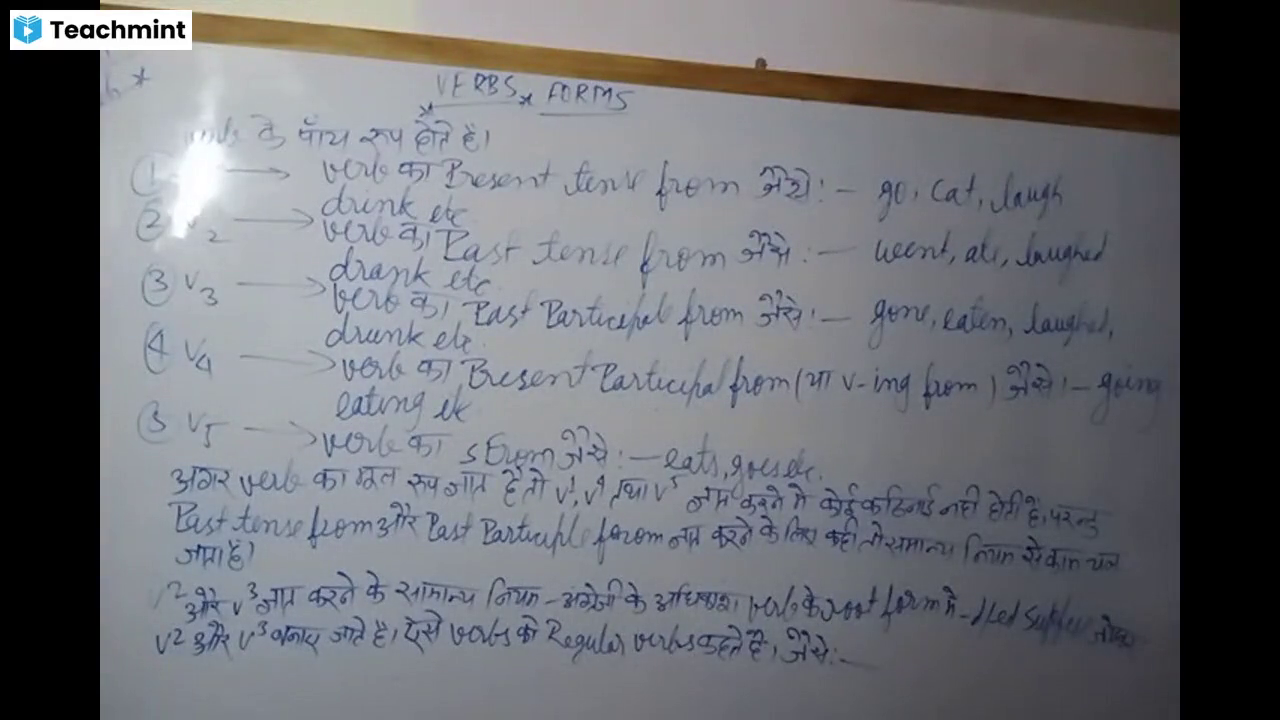 Teachmint
VERBS FORMS
के पाँच रूप होते हैं।
① → verb का Present tense from जैसे:- go, eat, laugh
drink etc
② V2 → verb का Past tense from जैसे:- went, ate, laughed
drank etc
③ V3 → verb का Past Participal from जैसे:- gone, eaten, laughed,
drunk etc.
④ V4 → verb का Present Participal from (या v-ing from) जैसे:- going
eating etc
V5 → verb का s From जैसे:- eats, goes etc.
अगर verb का मूल रूप ज्ञात है तो V1, V4 तथा V5 ज्ञात करने मे कोई कठिनाई नही होती है, परन्तु
Past tense from और Past Participle forom ज्ञात करने के लिए कही तो सामान्य नियम से काम चल
जाता है।
V2 और V3 ज्ञात करने के सामान्य नियम - अंग्रेजी के अधिकांश verb के root form मे -d/ed
V2 और V3 बनाए जाते है, ऐसे verbs को Regular verbs कहते है, जैसे:-